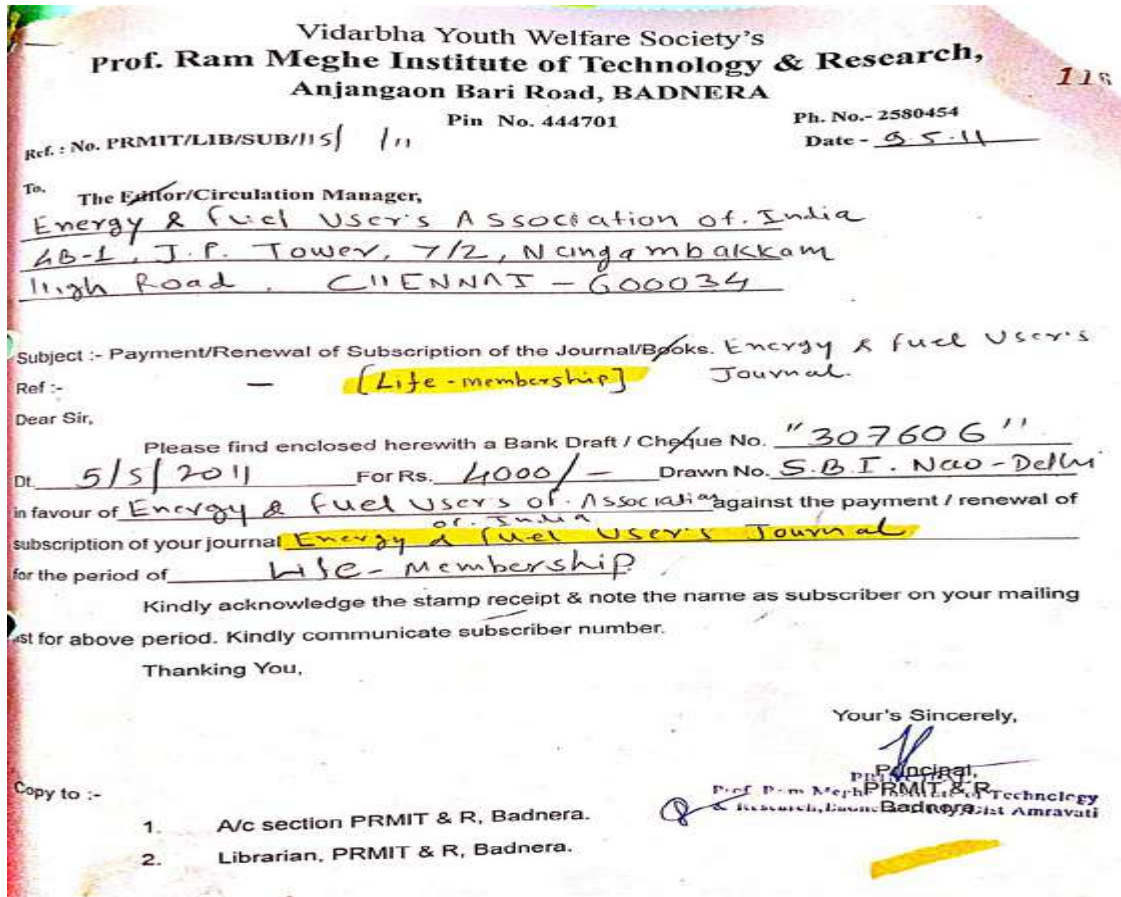 Vidarbha Youth Welfare Society's
Prof. Ram Meghe Institute of Technology & Research,
116
Anjangaon Bari Road, BADNERA
Pin No. 444701
Ph. No.- 2580454
Ref. : No. PRMIT/LIB/SUB/115/ /11
Date - 9.5.11
To,
The Editor/Circulation Manager,
Energy & Fuel User's Association of. India
4B-1, J.P. Tower, 7/2, Nungambakkam
High Road, CHENNAI - 600034
Subject :- Payment/Renewal of Subscription of the Journal/Books. Energy & Fuel User's
Ref :- — [Life-membership] Journal.
Dear Sir,
Please find enclosed herewith a Bank Draft / Cheque No. "307606"
Dt. 5/5/2011 For Rs. 4000/- Drawn No. S.B.I. New-Delhi
in favour of Energy & Fuel Users of. Association against the payment / renewal of
of. India
subscription of your journal Energy & Fuel User's Journal
for the period of Life-Membership
Kindly acknowledge the stamp receipt & note the name as subscriber on your mailing
ist for above period. Kindly communicate subscriber number.
Thanking You,
Your's Sincerely,
Principal,
PRMIT & R
Badnera
Technology
Amravati
Copy to :-
1. A/c section PRMIT & R, Badnera.
2. Librarian, PRMIT & R, Badnera.